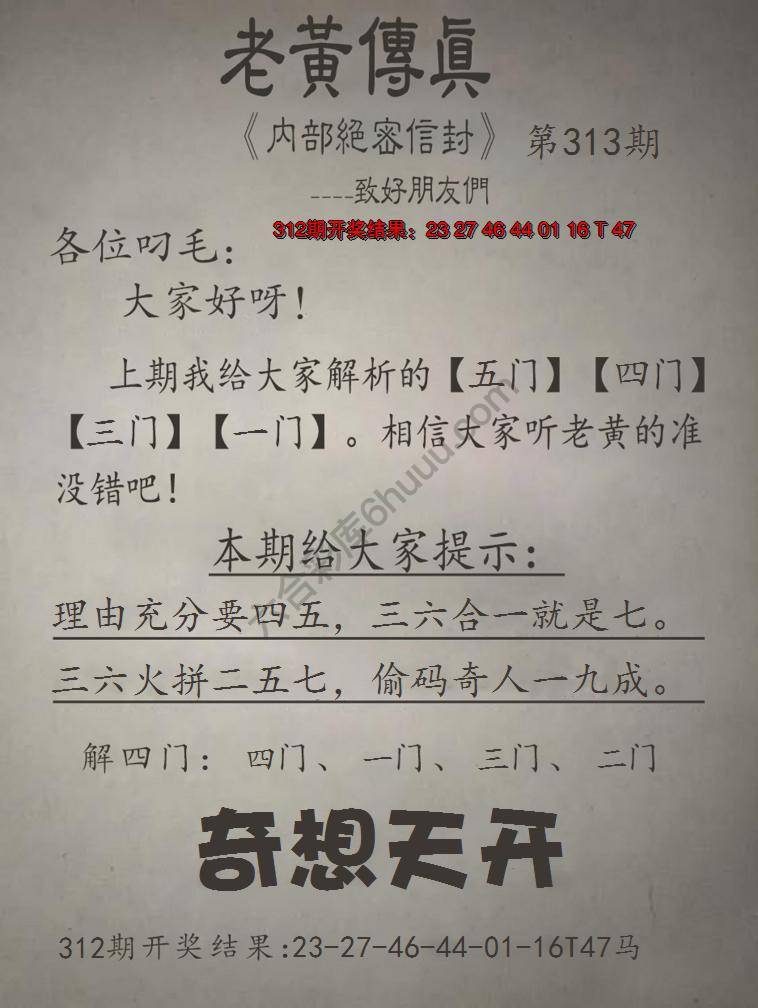 老黃傳眞
《内部絕密信封》 第313期
----致好朋友們
312期开奖结果：23 27 46 44 01 16 T 47
各位叼毛：
大家好呀！
上期我给大家解析的【五门】【四门】
【三门】【一门】。相信大家听老黄的准
没错吧！
六合彩库6huuu.com
本期给大家提示：
理由充分要四五，三六合一就是七。
三六火拼二五七，偷码奇人一九成。
解四门： 四门、 一门、 三门、 二门
奇想天开
312期开奖结果:23-27-46-44-01-16T47马